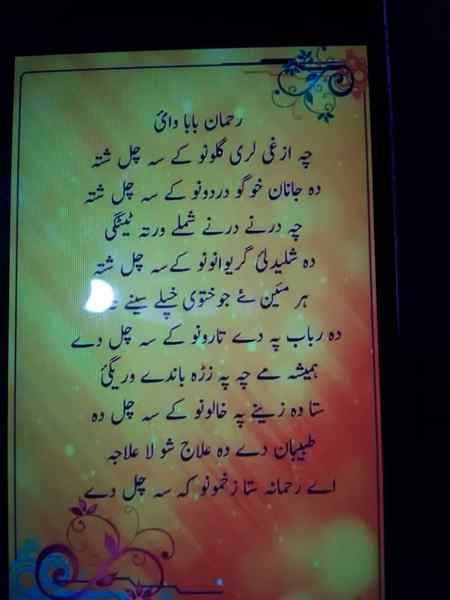 رحمان بابا وائ
چہ ازغی لری گلونو کے سہ چل شتہ
دہ جانان خوگو دردونو کے سہ چل شتہ
چہ درنے درنے شملے ورتہ ٹیٹگی
دہ شلیدلئ گریوانونو کے سہ چل شتہ
ہر مئین ئے جوختوی خپلے سینے
دہ رباب پہ دے تارونو کے سہ چل دے
ہمیشہ مے چہ پہ زڑہ باندے وریگئ
ستا وہ زینے پہ خالونو کے سہ چل دہ
طبیبان دے دہ علاج شو لا علاجہ
اے رحمانہ ستا زخمونو کہ سہ چل دے